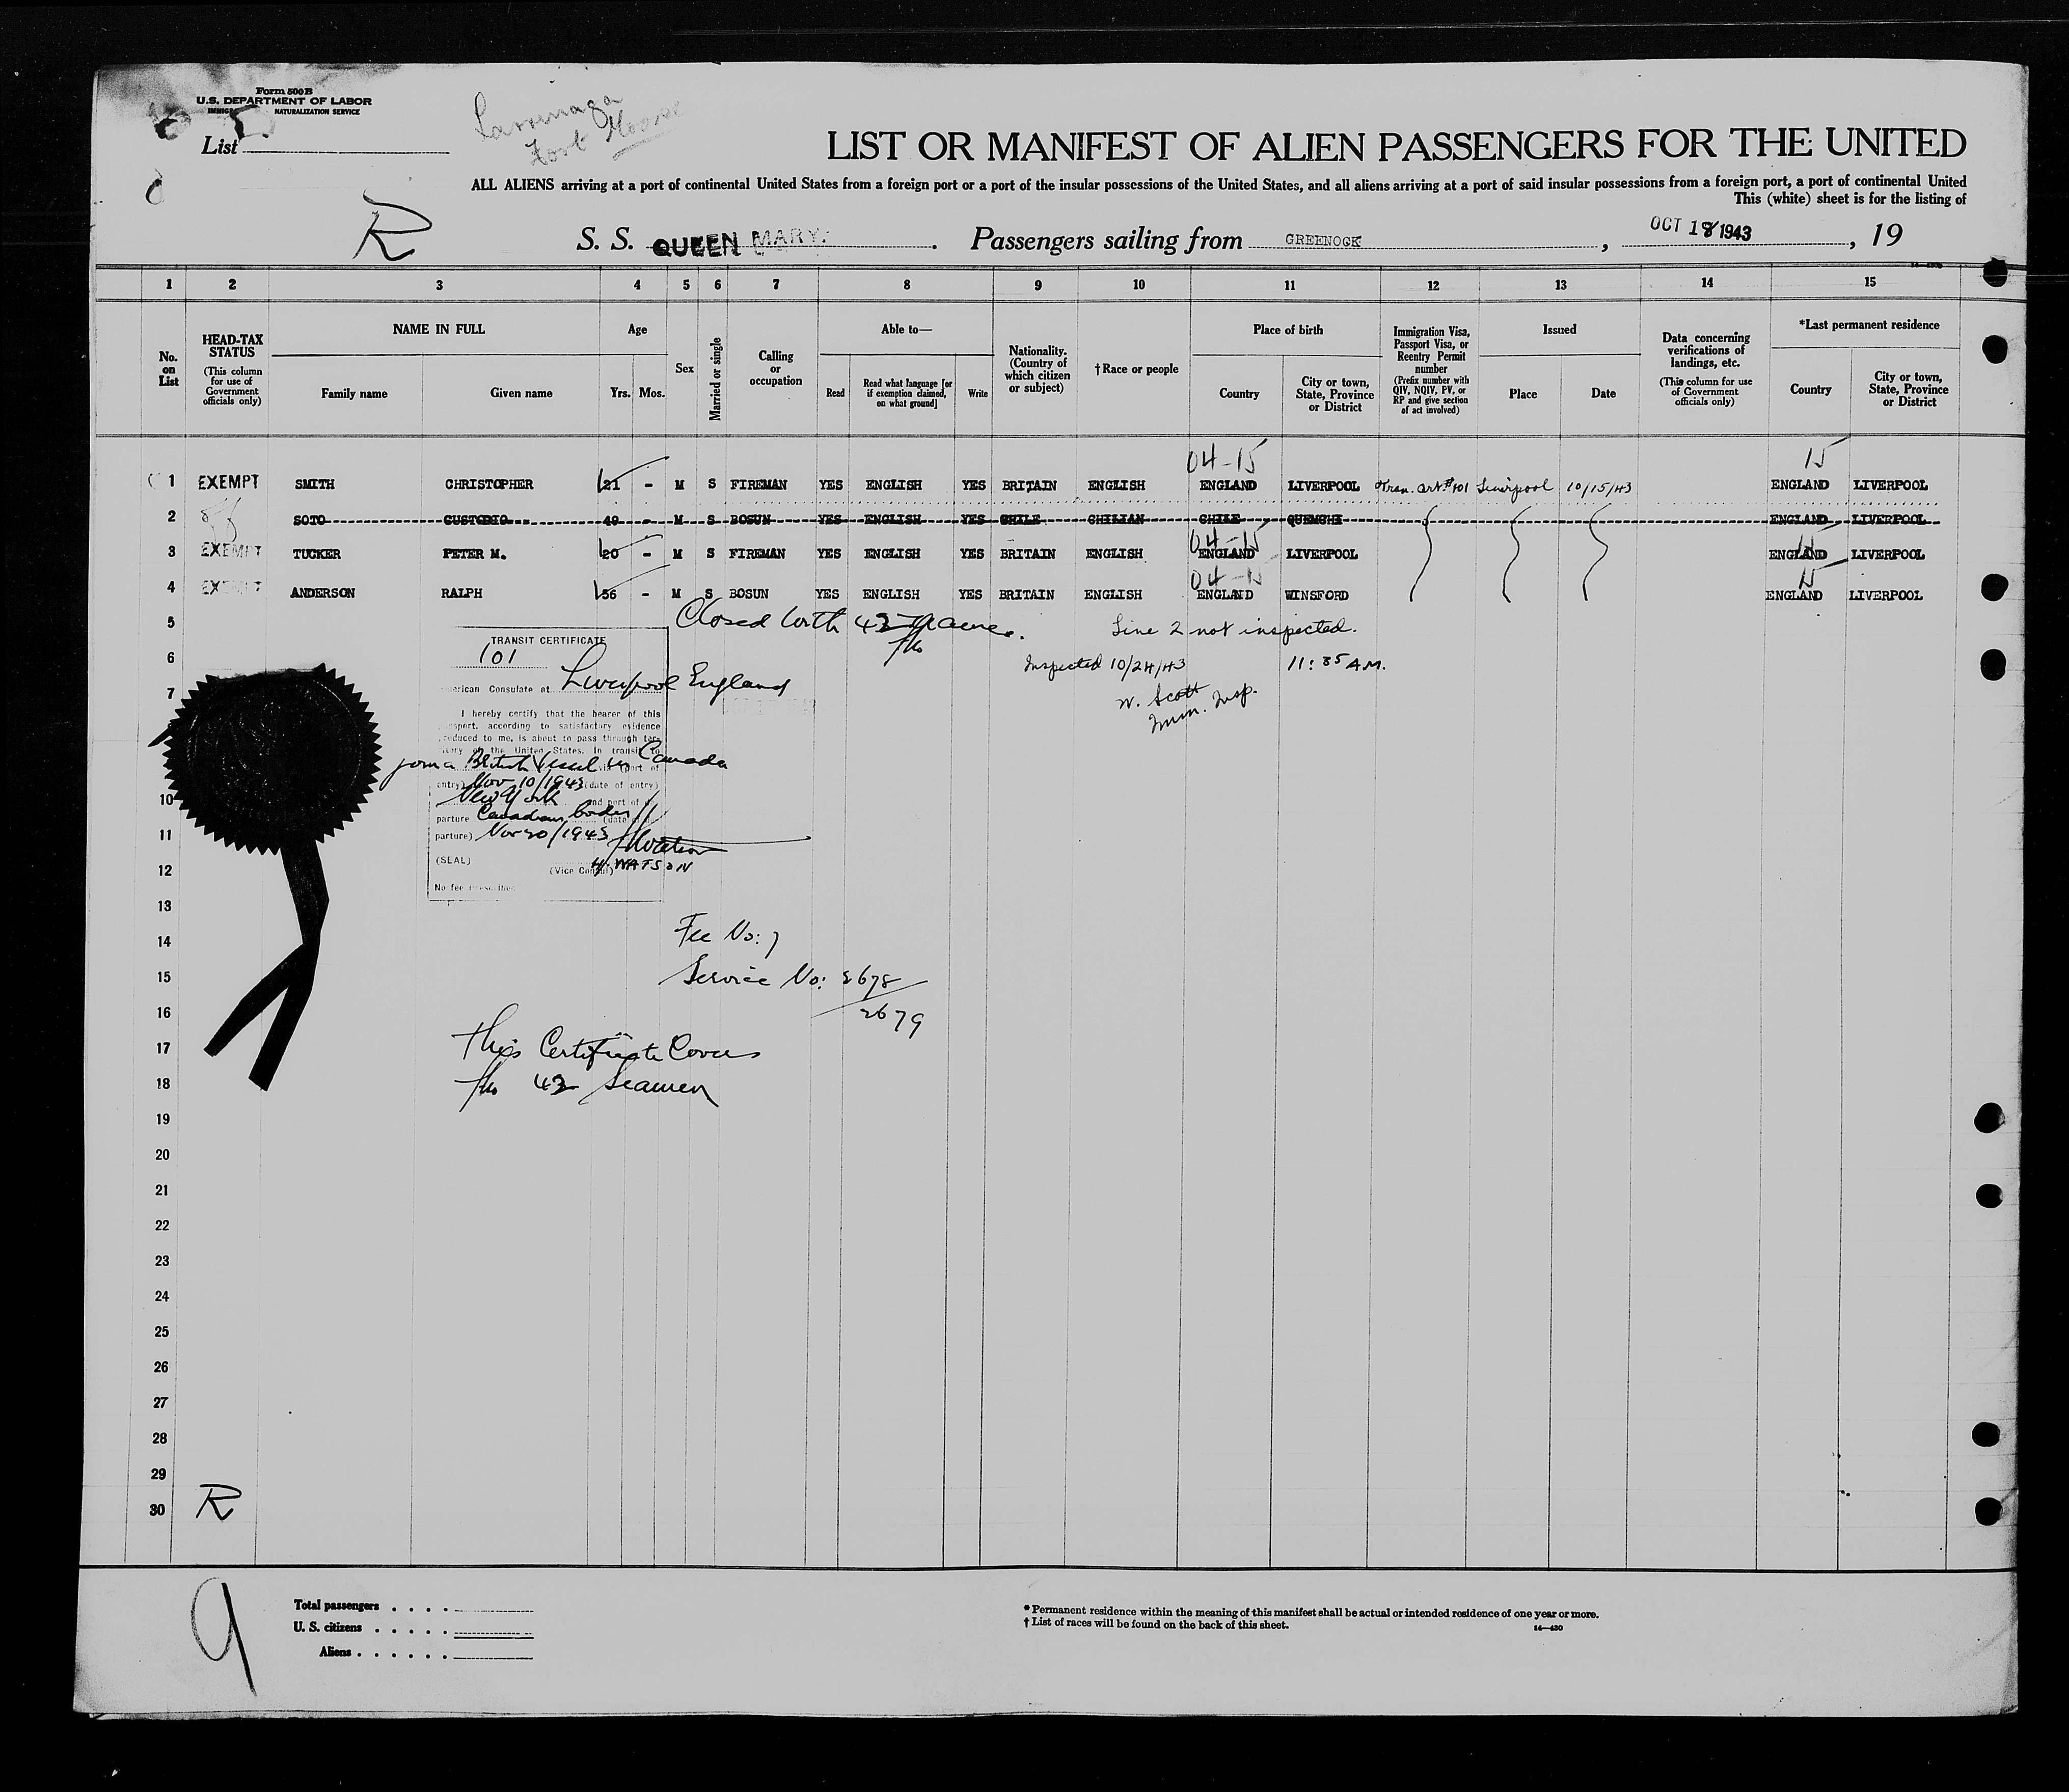 Form 500B
U.S. DEPARTMENT OF LABOR
NATURALIZATION SERVICE
Larrinaga
Fort Moose
List
LIST OR MANIFEST OF ALIEN PASSENGERS FOR THE UNITED
ALL ALIENS arriving at a port of continental United States from a foreign port or a port of the insular possessions of the United States, and all aliens arriving at a port of said insular possessions from a foreign port, a port of continental United
This (white) sheet is for the listing of
R
S. S. QUEEN MARY. Passengers sailing from GREENOCK, OCT 18 1943, 19
1 2 3 4 5 6 7 8 9 10 11 12 13 14 15
No. on List
HEAD-TAX STATUS
(This column for use of Government officials only)
NAME IN FULL
Family name Given name
Age
Yrs. Mos.
Sex
Married or single
Calling or occupation
Able to—
Read
Read what language [or if exemption claimed, on what ground]
Write
Nationality. (Country of which citizen or subject)
†Race or people
Place of birth
Country
City or town, State, Province or District
Immigration Visa, Passport Visa, or Reentry Permit number
(Prefix number with QIV, NQIV, PV, or RP and give section of act involved)
Issued
Place Date
Data concerning verifications of landings, etc.
(This column for use of Government officials only)
*Last permanent residence
Country
City or town, State, Province or District
04-15 15
1 EXEMPT SMITH CHRISTOPHER 21 - M S FIREMAN YES ENGLISH YES BRITAIN ENGLISH ENGLAND LIVERPOOL Tran. Crt.#101 Liverpool 10/15/43 ENGLAND LIVERPOOL
2 SOTO CUSTODIO 49 - M S BOSUN YES ENGLISH YES CHILE CHILIAN CHILE QUEMCHI ENGLAND LIVERPOOL
04-15 15
3 EXEMPT TUCKER PETER M. 20 - M S FIREMAN YES ENGLISH YES BRITAIN ENGLISH ENGLAND LIVERPOOL ENGLAND LIVERPOOL
04-15 15
4 EXEMPT ANDERSON RALPH 56 - M S BOSUN YES ENGLISH YES BRITAIN ENGLISH ENGLAND WINSFORD ENGLAND LIVERPOOL
5 Closed with 43 names. Line 2 not inspected.
6 Inspected 10/24/43 11:35 A.M.
7 W. Scott
Imm. Insp.
TRANSIT CERTIFICATE
101
American Consulate at Liverpool England
I hereby certify that the bearer of this
passport, according to satisfactory evidence
produced to me, is about to pass through ter-
ritory of the United States, in transit to
join a British Vessel in Canada
entry) Nov 10/1943 (date of entry)
New York and port of de-
parture Canadian border (date of de-
parture) Nov 20/1943
H. WATSON
(SEAL)
(Vice Consul)
No fee Prescribed
10
11
12
13
14 Fee No: 7
15 Service No: 2678
16 2679
17 This Certificate Covers
18 43 Seamen
19
20
21
22
23
24
25
26
27
28
29
30 R
9
Total passengers
U. S. citizens
Aliens
* Permanent residence within the meaning of this manifest shall be actual or intended residence of one year or more.
† List of races will be found on the back of this sheet.
14—430